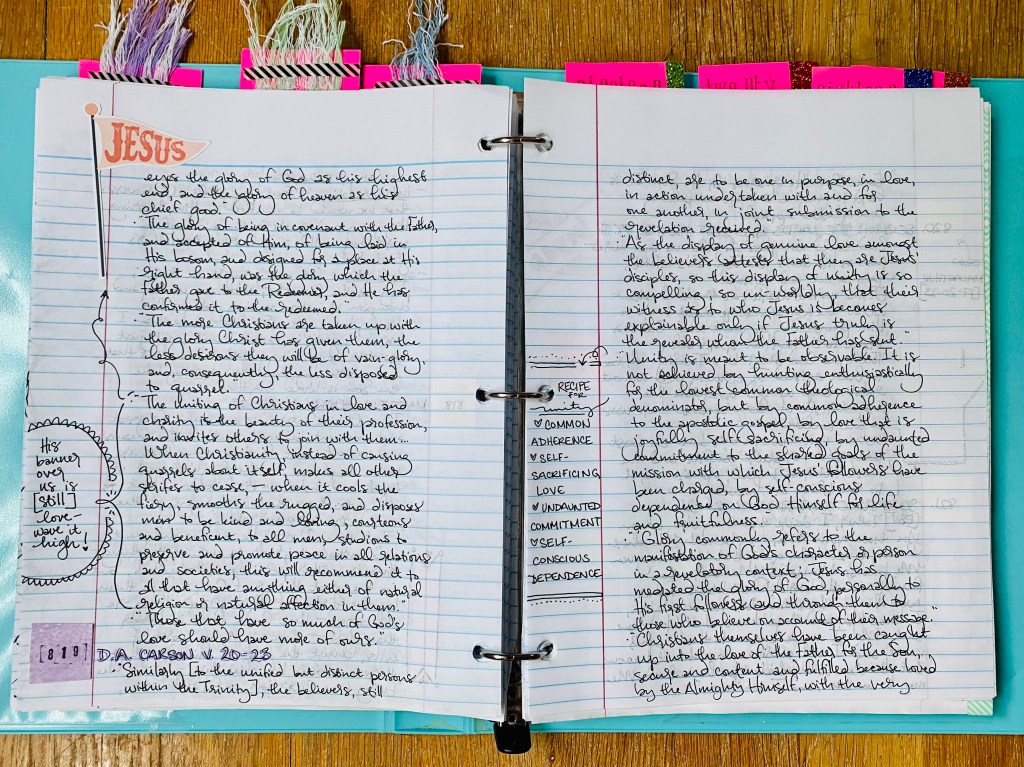 JESUS
eyes the glory of God as his highest
end, and the glory of heaven as his
chief good."
"The glory of being in covenant with the Father,
and accepted of Him, of being laid in
His bosom, and designed for a place at His
right hand, was the glory which the
Father gave to the Redeemer, and He has
confirmed it to the redeemed."
"The more Christians are taken up with
the glory Christ has given them, the
less desirous they will be of vain-glory,
and, consequently, the less disposed
to quarrel."
"The uniting of Christians in love and
charity is the beauty of their profession,
and invites others to join with them...
When Christianity, instead of causing
quarrels about itself, makes all other
strifes to cease, — when it cools the
fiery, smooths the rugged, and disposes
men to be kind and loving, courteous
and beneficent, to all men, studious to
preserve and promote peace in all relations
and societies, this will recommend it to
all that have anything either of natural
religion or natural affection in them."
"Those that have so much of God's
love should have more of ours."
His
banner
over
us is
[still]
love-
wave it
high!
[819]
D.A. CARSON V. 20-23
"Similarly [to the unified but distinct persons
within the Trinity], the believers, still
distinct, are to be one in purpose, in love,
in action undertaken with and for
one another, in joint submission to the
revelation received."
"As the display of genuine love amongst
the believers attests that they are Jesus'
disciples, so this display of unity is so
compelling, so un-worldly, that their
witness as to who Jesus is becomes
explainable only if Jesus truly is
the revealer whom the Father has sent."
"Unity is meant to be observable. It is
not achieved by hunting enthusiastically
for the lowest common theological
denominator, but by common adherence
to the apostolic gospel, by love that is
joyfully self-sacrificing, by undaunted
commitment to the shared goals of the
mission with which Jesus' followers have
been charged, by self-conscious
dependence on God Himself for life
and fruitfulness."
"Glory commonly refers to the
manifestation of God's character or person
in a revelatory context; Jesus has
mediated the glory of God, personally to
His first followers and through them to
those who believe on account of their message."
"Christians themselves have been caught
up into the love of the Father for the Son,
secure and content and fulfilled because loved
by the Almighty Himself, with the very
RECIPE
FOR
unity
♡ COMMON
ADHERENCE
♡ SELF-
SACRIFICING
LOVE
♡ UNDAUNTED
COMMITMENT
♡ SELF-
CONSCIOUS
DEPENDENCE